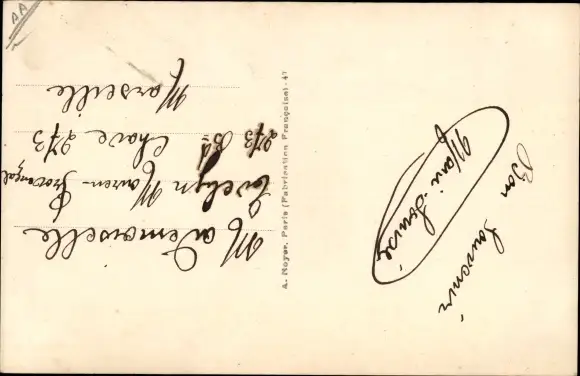 Bon Souvenir
Marie-Louise
A. Noyer, Paris (Fabrication Française) - 47
Mademoiselle
Evelyn Mauren-Provençal
273 Bd Chave 273
Marseille
AA